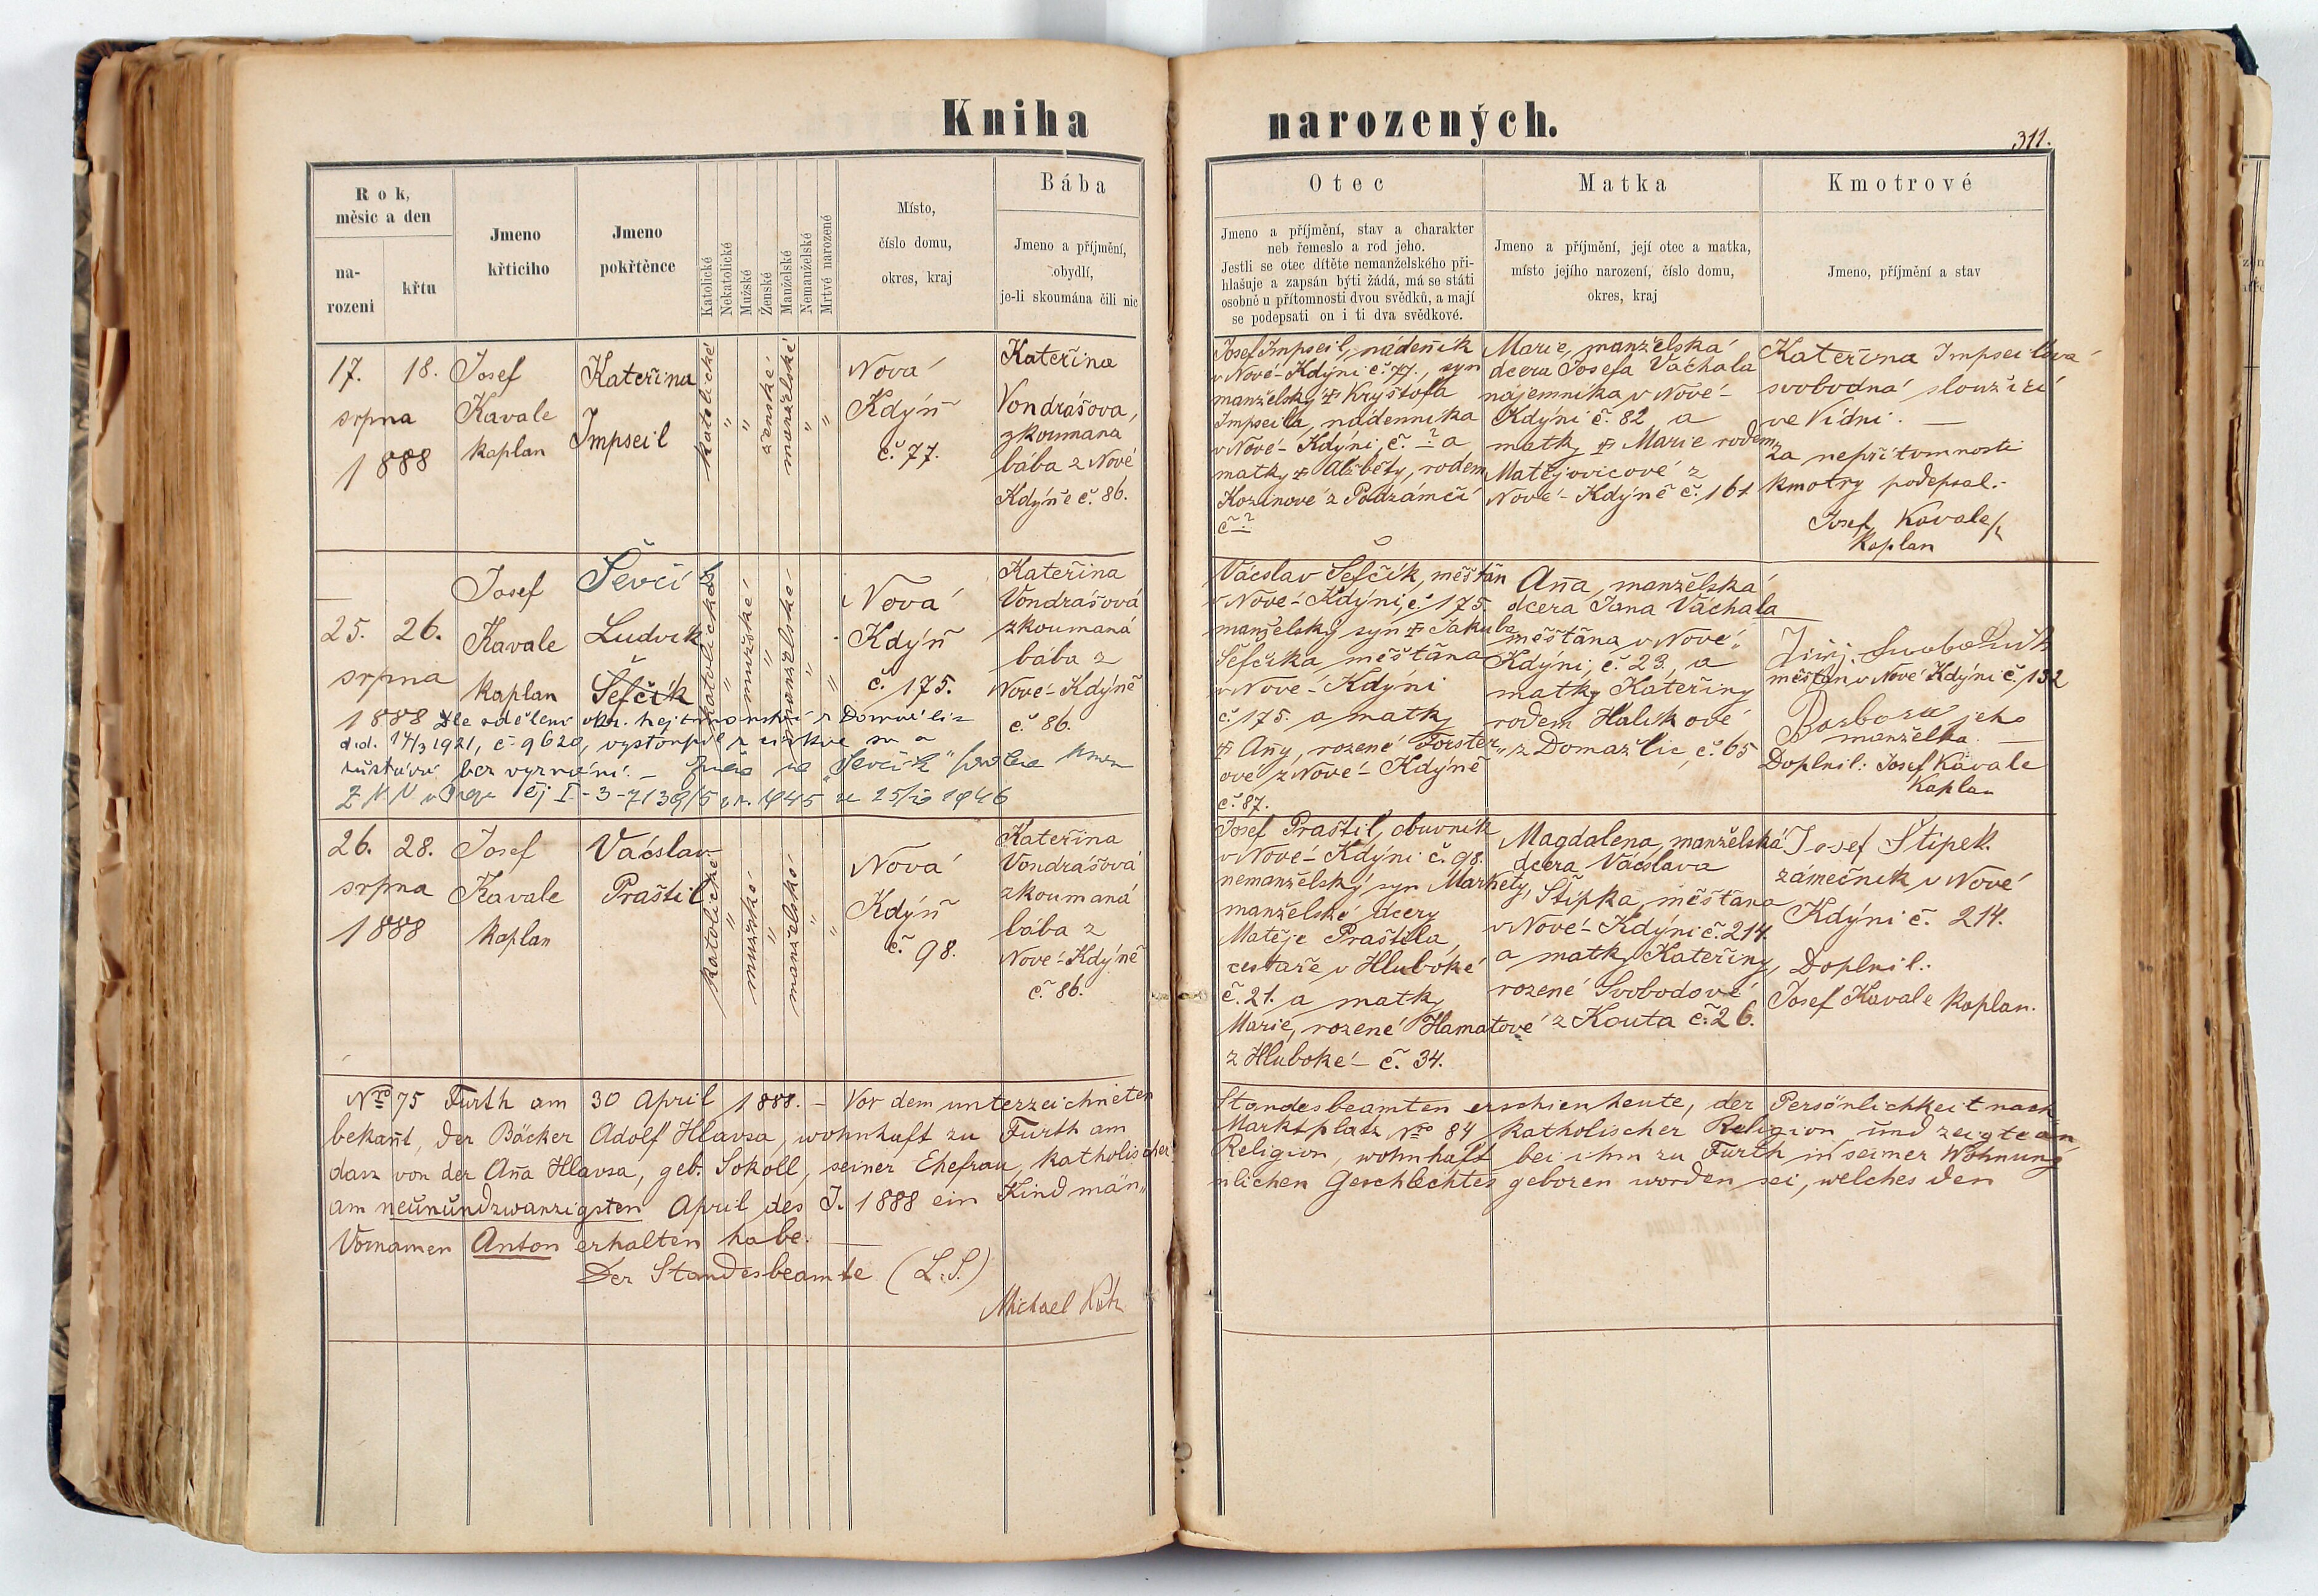 Kniha narozených.
311.
Rok,
měsíc a den
na-
rozeni
křtu
Jmeno
křticiho
Jmeno
pokřtěnce
Katolické
Nekatolické
Mužské
Ženské
Manželské
Nemanželské
Mrtvé narozené
Místo,
číslo domu,
okres, kraj
Bába
Jmeno a příjmění,
obydlí,
je-li skoumána čili nic
Otec
Jmeno a příjmění, stav a charakter
neb řemeslo a rod jeho.
Jestli se otec dítěte nemanželského při-
hlašuje a zapsán býti žádá, má se státi
osobně u přítomnosti dvou svědků, a mají
se podepsati on i ti dva svědkové.
Matka
Jmeno a příjmění, její otec a matka,
místo jejího narození, číslo domu,
okres, kraj
Kmotrové
Jmeno, příjmění a stav
17. 18.
srpna
1888
Josef
Kavale
kaplan
Kateřina
Impseil
katolické
"
"
ženské
manželské
"
"
Nová
Kdýň
č. 77.
Kateřina
Vondrašova,
zkoumana
bába z Nové
Kdýně č. 86.
Josef Impseil, nádeník
v Nové-Kdýni č. 77., syn
manželský † Kryštofa
Impseila, nádenníka
v Nové-Kdýni, č. ? a
matky † Alžběty, rodem
Kozinové z Podzámčí
č. ?
Marie, manželská
dcera Josefa Váchala
nájemníka v Nové-
Kdýni č. 82 a
matky † Marie rodem
Matějovicové z
Nové-Kdýně č. 161.
Kateřina Impseilova
svobodná sloužící
ve Vídni. —
Za nepřítomnosti
kmotry podepsal.-
Josef Kavale
kaplan
25. 26.
srpna
1888
Josef
Kavale
kaplan
Ševčí
Ludvik
Šefčík
katolické
"
mužské
"
manželské
"
"
Nová
Kdýň
č. 175.
Kateřina
Vondrašová
zkoumaná
bába z
Nové-Kdýně
č. 86.
Dle sdělení okr. hejtmanství z Domažlic
dtd. 14/3 1921, č. 9620, vystoupil z církve a
zůstává bez vyznání. —
"Ševčík"
ZNV v Praze čj I-3-7139/5 z r. 1945 ze 25/10 1946
Václav Šefčík, měštan
v Nové-Kdýni, č. 175.
manželský syn † Jakuba
Šefčíka měštana
v Nové-Kdýni
č. 175. a matky
† Any, rozené Forster„
ové z Nové-Kdýně
č. 87.
Ana, manželská
dcera Jana Váchala
měštana v Nové„
Kdýni, č. 23., a
matky Kateřiny
rodem Halíkové
z Domažlic, č. 65
měštan v Nové Kdýni č. 132
Barbora jeho
manželka. —
Doplnil: Josef Kavale
kaplan
26. 28.
srpna
1888
Josef
Kavale
kaplan
Vácslav
Praštil
katolické
"
mužské
"
manželské
"
"
Nová
Kdýň
č. 98.
Kateřina
Vondrašová
zkoumaná
bába z
Nové-Kdýně
č. 86.
Josef Praštil, obuvník
v Nové-Kdýni č. 98.
nemanželský syn Markety,
manželské dcery
Matěje Praštila,
cestaře v Hluboké
č. 21. a matky
Marie, rozené Hamatové
z Hluboké - č. 34.
Magdalena, manželská
dcera Vácslava
Štípka, měštana
v Nové-Kdýni č. 214.
a matky Kateřiny,
rozené Svobodové
z Kouta č. 26.
Josef Štipek
zámečník v Nové
Kdýni č. 214.
Doplnil:
Josef Kavale kaplan.
Nro 75 Furth am 30 April 1888. - Vor dem unterzeichneten Standesbeamten erschien heute, der Persönlichkeit nach
bekant, der Bäcker Adolf Hlavsa, wohnhaft zu Furth am Marktplatz Nro 84 katholischer Religion und zeigte an
dasz von der Ana Hlavsa, geb. Sokoll, seiner Ehefrau, katholischer Religion, wohnhaft bei ihm zu Furth in seiner Wohnung
am neunundzwanzigsten April des J. 1888 ein Kind män„ nlichen Geschlechtes geboren worden sei, welches den
Vornamen Anton erhalten habe. —
Der Standesbeamte (L.S.)
Michael